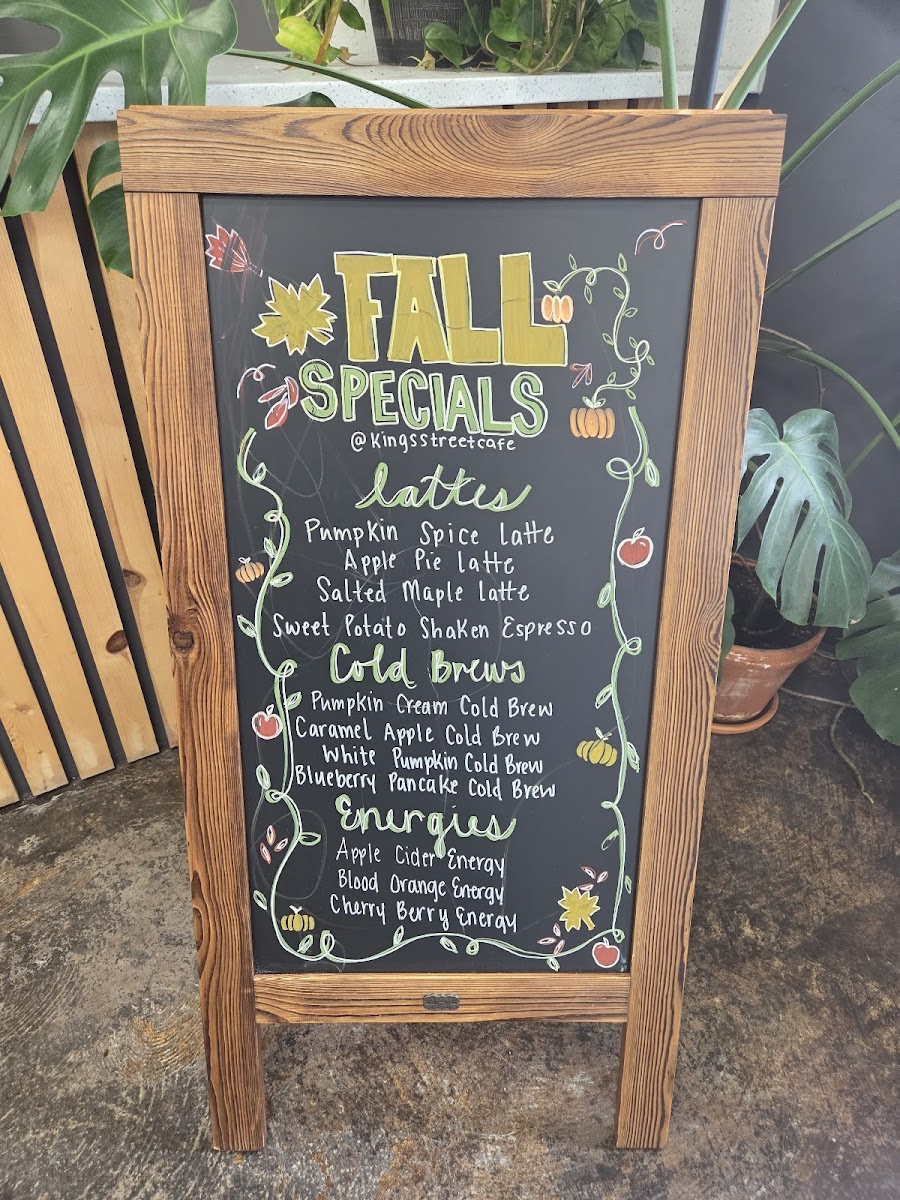 FALL
SPECIALS
@kingsstreetcafe
lattes
Pumpkin Spice latte
Apple Pie latte
Salted Maple latte
Sweet Potato Shaken Espresso
Cold Brews
Pumpkin Cream Cold Brew
Caramel Apple Cold Brew
White Pumpkin Cold Brew
Blueberry Pancake Cold Brew
Energies
Apple Cider Energy
Blood Orange Energy
Cherry Berry Energy